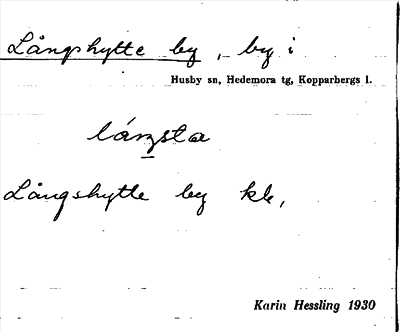 Långshytte by, by i
Husby sn, Hedemora tg, Kopparbergs l.
låŋsta
Långshytte by kk,
Karin Hessling 1930